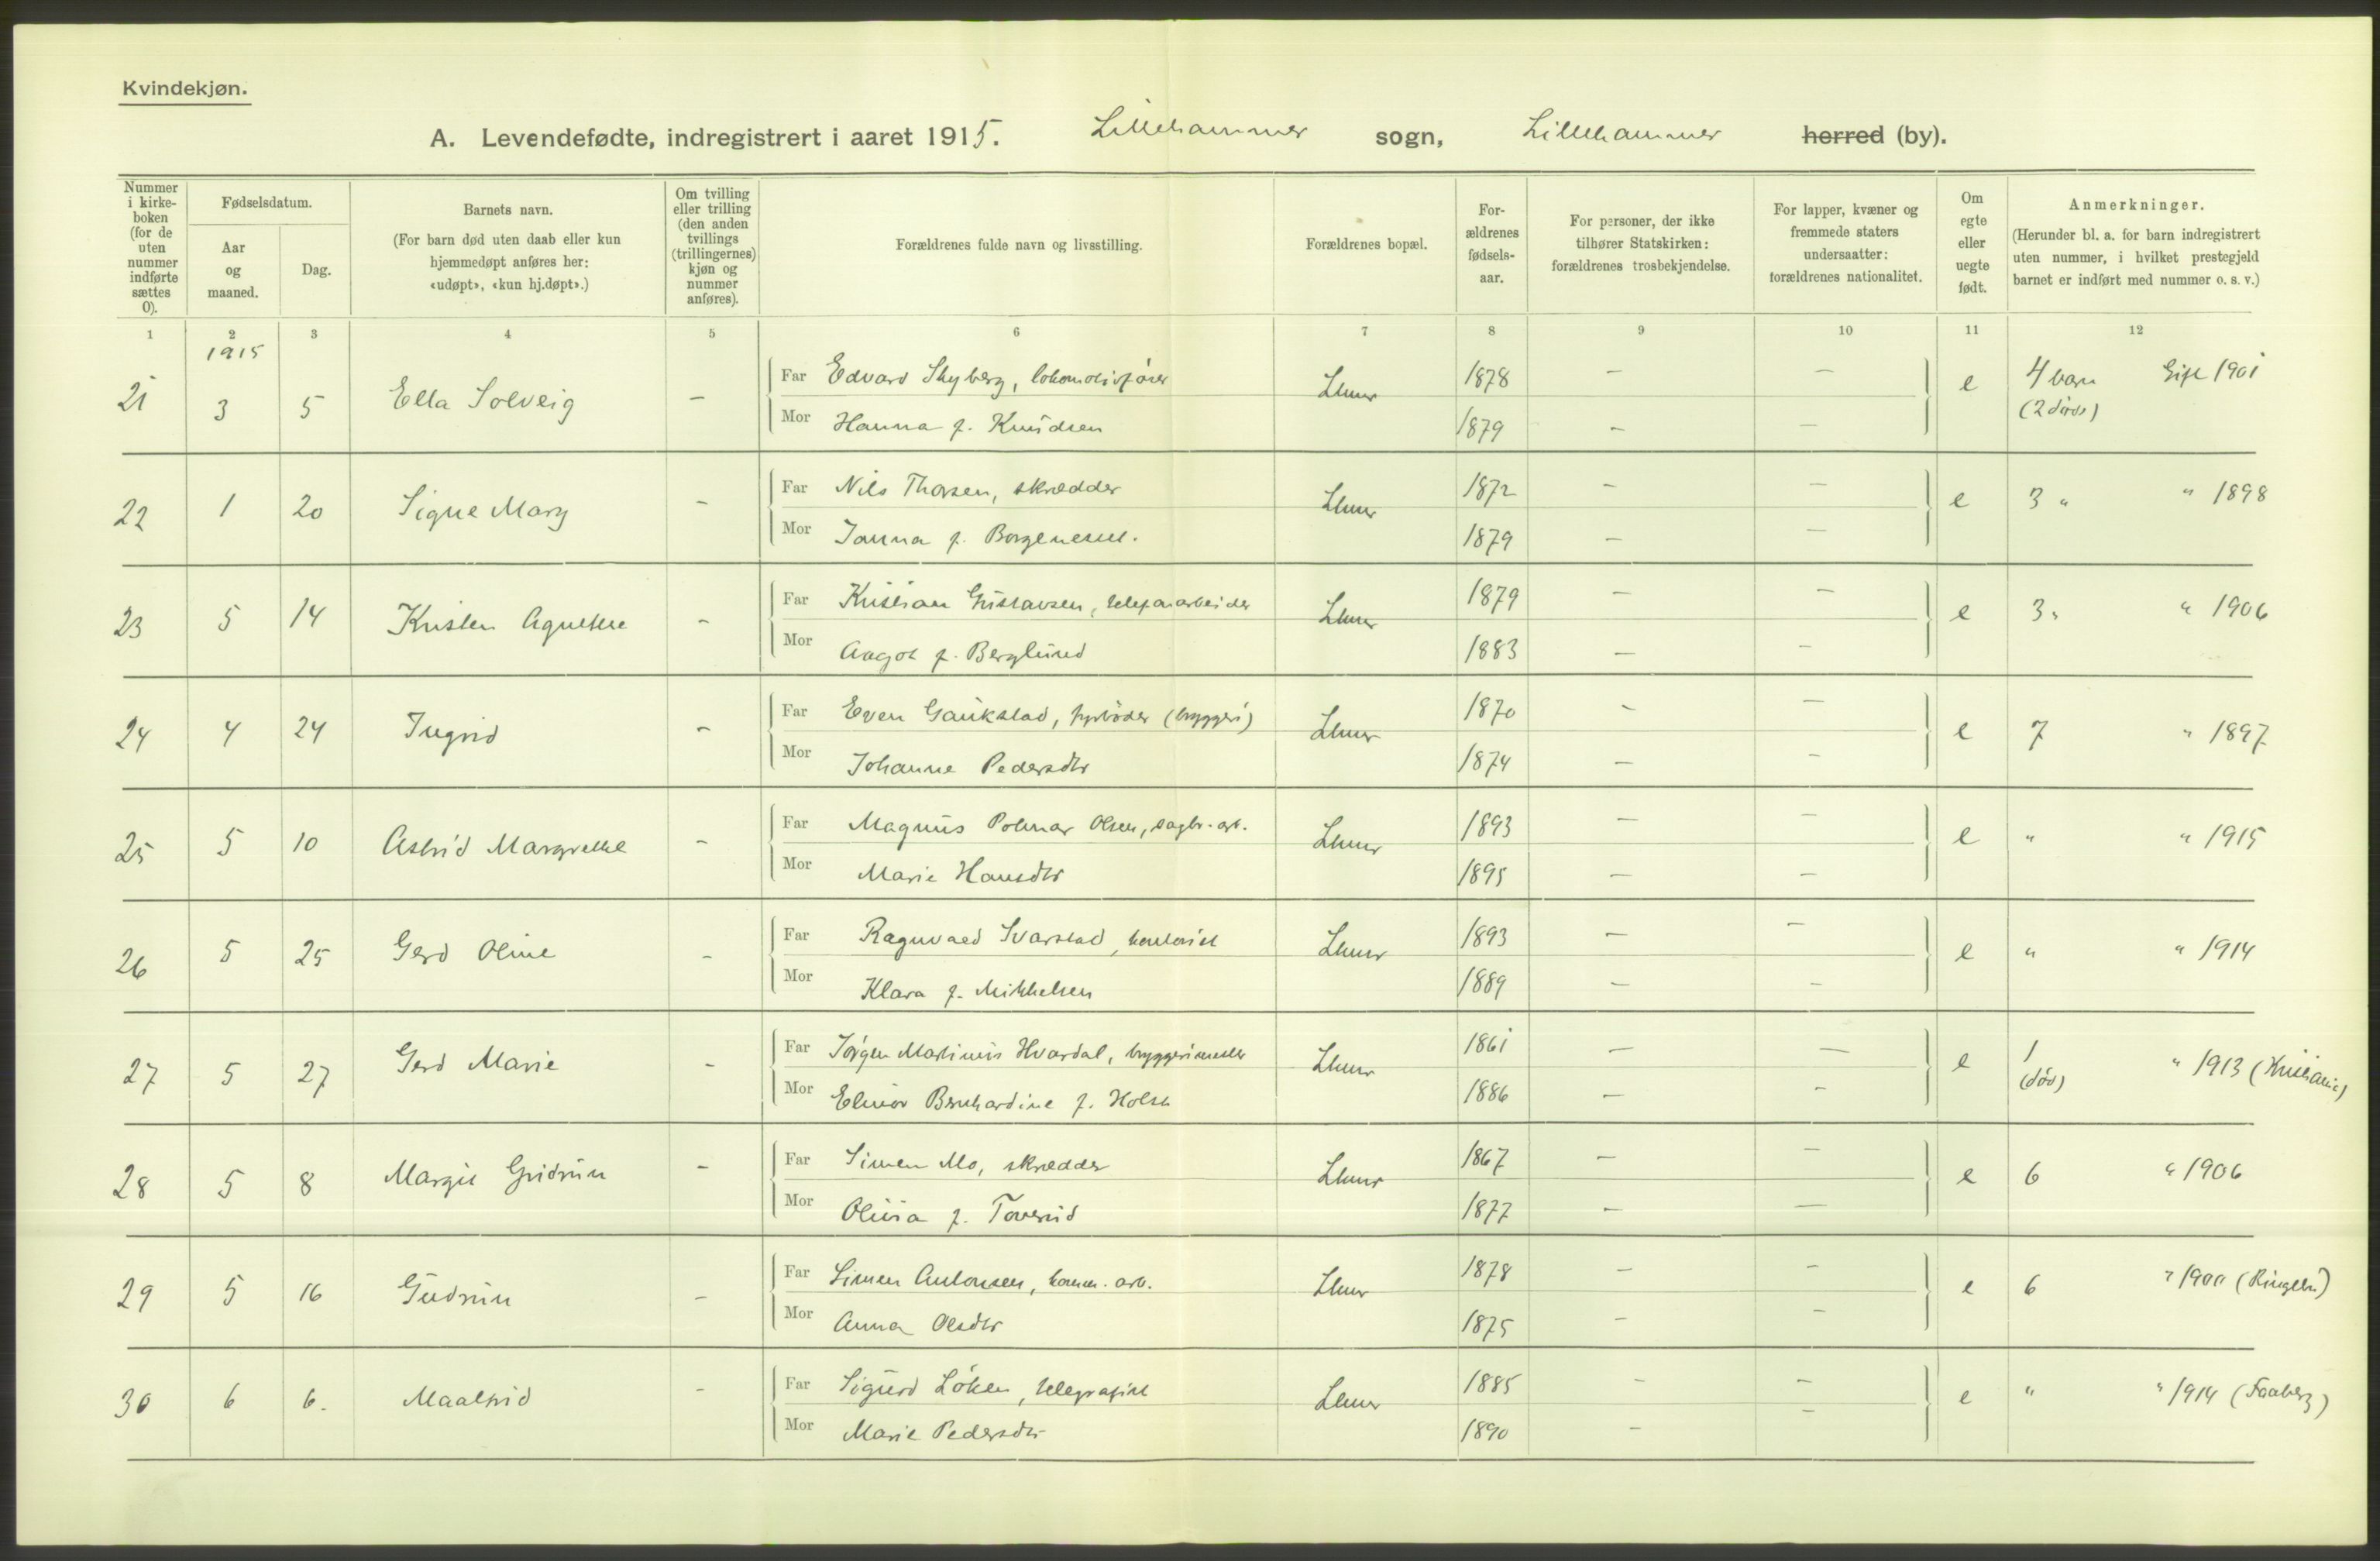 Kvindekjøn.
A. Levendefødte, indregistrert i aaret 1915. Lillehammer sogn, Lillehammer herred (by).
Nummer i kirke-boken (for de uten nummer indførte sættes 0).
Fødselsdatum.
Aar og maaned.
Dag.
Barnets navn.
(For barn død uten daab eller kun hjemmedøpt anføres her: «udøpt», «kun hj.døpt».)
Om tvilling eller trilling (den anden tvillings (trillingernes) kjøn og nummer anføres).
Forældrenes fulde navn og livsstilling.
Forældrenes bopæl.
For-ældrenes fødsels-aar.
For personer, der ikke tilhører Statskirken: forældrenes trosbekjendelse.
For lapper, kvæner og fremmede staters undersaatter: forældrenes nationalitet.
Om egte eller uegte født.
Anmerkninger.
(Herunder bl. a. for barn indregistrert uten nummer, i hvilket prestegjeld barnet er indført med nummer o. s. v.)
1 2 3 4 5 6 7 8 9 10 11 12
1915
21 3 5 Ella Solveig - Far Edvard Skyberg, lokomotivfører Lhmr 1878 - - e 4 barn Gift 1901
Mor Hanna f. Knudsen 1879 - - (2 døde)
22 1 20 Signe Mary - Far Nils Thorsen, skrædder Lhmr 1872 - - e 3 " " 1898
Mor Janna f. 1879 - -
23 5 14 Kristen Agnethe - Far Kristian Gustavsen, telefonarbeider Lhmr 1879 - - e 3 " " 1906
Mor Aagot f. Berglund 1883 - -
24 4 24 Ingrid - Far Even Gaukstad, fyrbøder (bryggeri) Lhmr 1870 - - e 7 " 1897
Mor Johanne Pedersdtr 1874 - -
25 5 10 Astrid Margrethe - Far Magnus Polmar Olsen, sagbr. arb. Lhmr 1893 - - e " " 1915
Mor Marie Hansdtr 1895 - -
26 5 25 Gerd Oline - Far Ragnvald Svarstad, kontorist Lhmr 1893 - - e " " 1914
Mor Klara f. Mikkelsen 1889 - -
27 5 27 Gerd Marie - Far Jørgen Martinius Hvardal, bryggerimester Lhmr 1861 - - e 1 " 1913 (Kristiania)
Mor Elinor Bernhardine f. Holst 1886 - - (død)
28 5 8 Margit Gudrun - Far Simen Mo, skrædder Lhmr 1867 - - e 6 " 1906
Mor Olivia f. Toverud 1877 - -
29 5 16 Gudrun - Far Simen Antonsen, komm. arb. Lhmr 1878 - - e 6 " 1900 (Ringebu)
Mor Anna Olsdtr 1875 - -
30 6 6. Maalfrid - Far Sigurd Løken, telegrafist Lhmr 1885 - - e " " 1914 (Faaberg)
Mor Marie Pedersdtr 1890 - -